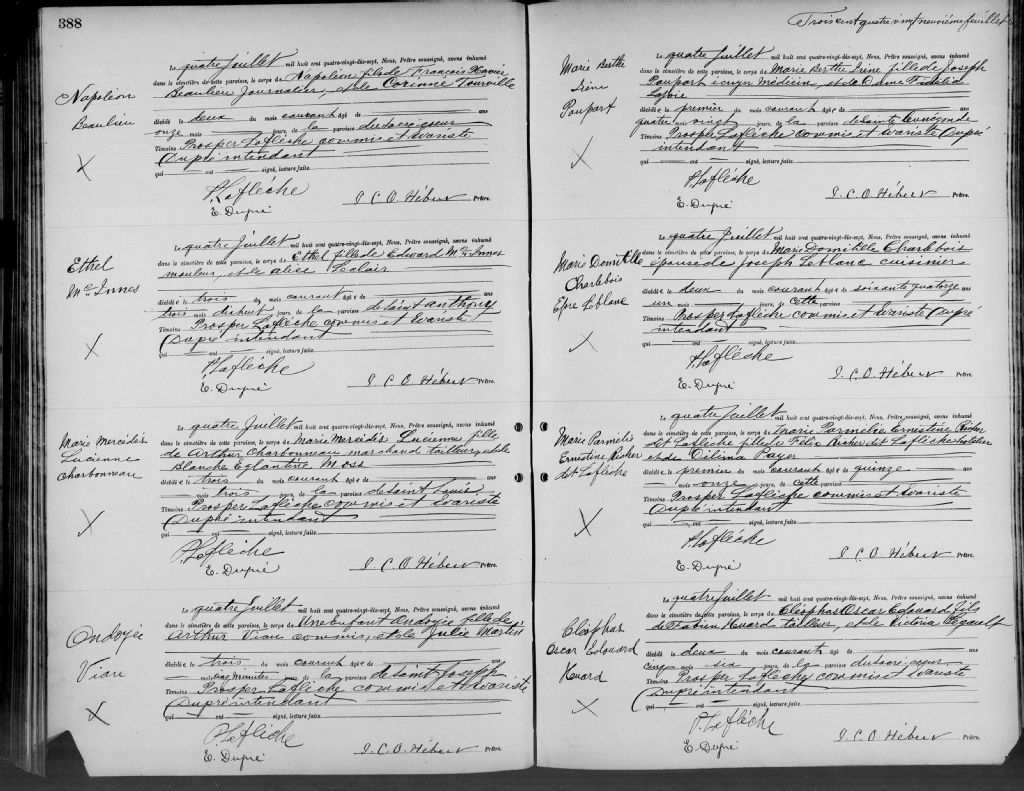 388
Napoléon
Beaulieu
Le quatre Juillet mil huit cent quatre-vingt-dix-sept, Nous, Prêtre soussigné, avons inhumé
dans le cimetière de cette paroisse, le corps de Napoléon fils de François Xavier
Beaulieu Journalier, et de Corinne Tourville
décédé le deux du mois courant âgé de ans
onze mois jours, de la paroisse du Sacré coeur
Témoins Prosper Laflèche commis et Evariste
Dupré intendant
qui ont signé, lecture faite.
P. Laflèche
E. Dupré
J. C. O. Hébert Prêtre.
Ethel
Mc Innes
Le quatre Juillet mil huit cent quatre-vingt-dix-sept, Nous, Prêtre soussigné, avons inhumé
dans le cimetière de cette paroisse, le corps de Ethel fille de Edward Mc Innes
mouleur, et de Alice Leclair
décédée le trois du mois courant âgée de ans
trois mois dixhuit jours, de la paroisse de Saint Anthony
Témoins Prosper Laflèche commis et Evariste
Dupré intendant
qui ont signé, lecture faite.
P. Laflèche
E. Dupré
J. C. O. Hébert Prêtre.
Marie Mercédès
Lucienne
Charbonneau
Le quatre Juillet mil huit cent quatre-vingt-dix-sept, Nous, Prêtre soussigné, avons inhumé
dans le cimetière de cette paroisse, le corps de Marie Mercédès Lucienne fille
de Arthur Charbonneau marchand tailleur, et de
Blanche Eglantine Moss
décédée le trois du mois courant âgée de ans
mois trois jours, de la paroisse de Saint Louis
Témoins Prosper Laflèche commis et Evariste
Dupré intendant
qui ont signé, lecture faite.
P. Laflèche
E. Dupré
J. C. O. Hébert Prêtre.
Ondoyée
Viau
Le quatre Juillet mil huit cent quatre-vingt-dix-sept, Nous, Prêtre soussigné, avons inhumé
dans le cimetière de cette paroisse, le corps de Une enfant Ondoyée fille de
Arthur Viau commis, et de Julie Martin
décédée le trois du mois courant âgée de ans
mois cinq minutes jours, de la paroisse de Saint Joseph
Témoins Prosper Laflèche commis et Evariste
Dupré intendant
qui ont signé, lecture faite.
P. Laflèche
E. Dupré
J. C. O. Hébert Prêtre.
Trois cent quatre vingt neuvième feuillet
Marie Berthe
Irène
Poupart
Le quatre Juillet mil huit cent quatre-vingt-dix-sept, Nous, Prêtre soussigné, avons inhumé
dans le cimetière de cette paroisse, le corps de Marie Berthe Irène fille de Joseph
Poupart écuyer Médecin, et de Dame
Lavoie
décédée le premier du mois courant âgée de ans
quatre mois vingt jours, de la paroisse de Sainte Cunégonde
Témoins Prosper Laflèche commis et Evariste Dupré
intendant
qui ont signé, lecture faite.
P. Laflèche
E. Dupré
J. C. O. Hébert Prêtre.
Marie Domitille
Charlebois
Epse Leblanc
Le quatre Juillet mil huit cent quatre-vingt-dix-sept, Nous, Prêtre soussigné, avons inhumé
dans le cimetière de cette paroisse, le corps de Marie Domitille Charlebois
épouse de Joseph Leblanc cuisinier
décédée le deux du mois courant âgée de soixante quatorze ans
un mois jours, de cette paroisse
Témoins Prosper Laflèche commis et Evariste Dupré
intendant
qui ont signé, lecture faite.
P. Laflèche
E. Dupré
J. C. O. Hébert Prêtre.
Marie Parmélie
Ernestine Richer
dit Laflèche
Le quatre Juillet mil huit cent quatre-vingt-dix-sept, Nous, Prêtre soussigné, avons inhumé
dans le cimetière de cette paroisse, le corps de Marie Parmélie Ernestine Richer
dit Laflèche fille de Félix Richer dit Laflèche hôtelier
et de Délima Payer
décédée le premier du mois courant âgée de quinze ans
mois onze jours, de cette paroisse
Témoins Prosper Laflèche commis et Evariste
Dupré intendant
qui ont signé, lecture faite.
P. Laflèche
E. Dupré
J. C. O. Hébert Prêtre.
Cléophas
Oscar Edouard
Huard
Le quatre Juillet mil huit cent quatre-vingt-dix-sept, Nous, Prêtre soussigné, avons inhumé
dans le cimetière de cette paroisse, le corps de Cléophas Oscar Edouard fils
de Fabien Huard tailleur, et de Victoria Legault
décédé le deux du mois courant âgé de ans
cinq mois six jours, de la paroisse du Sacré coeur
Témoins Prosper Laflèche commis et Evariste
Dupré intendant
qui ont signé, lecture faite.
P. Laflèche
E. Dupré
J. C. O. Hébert Prêtre.